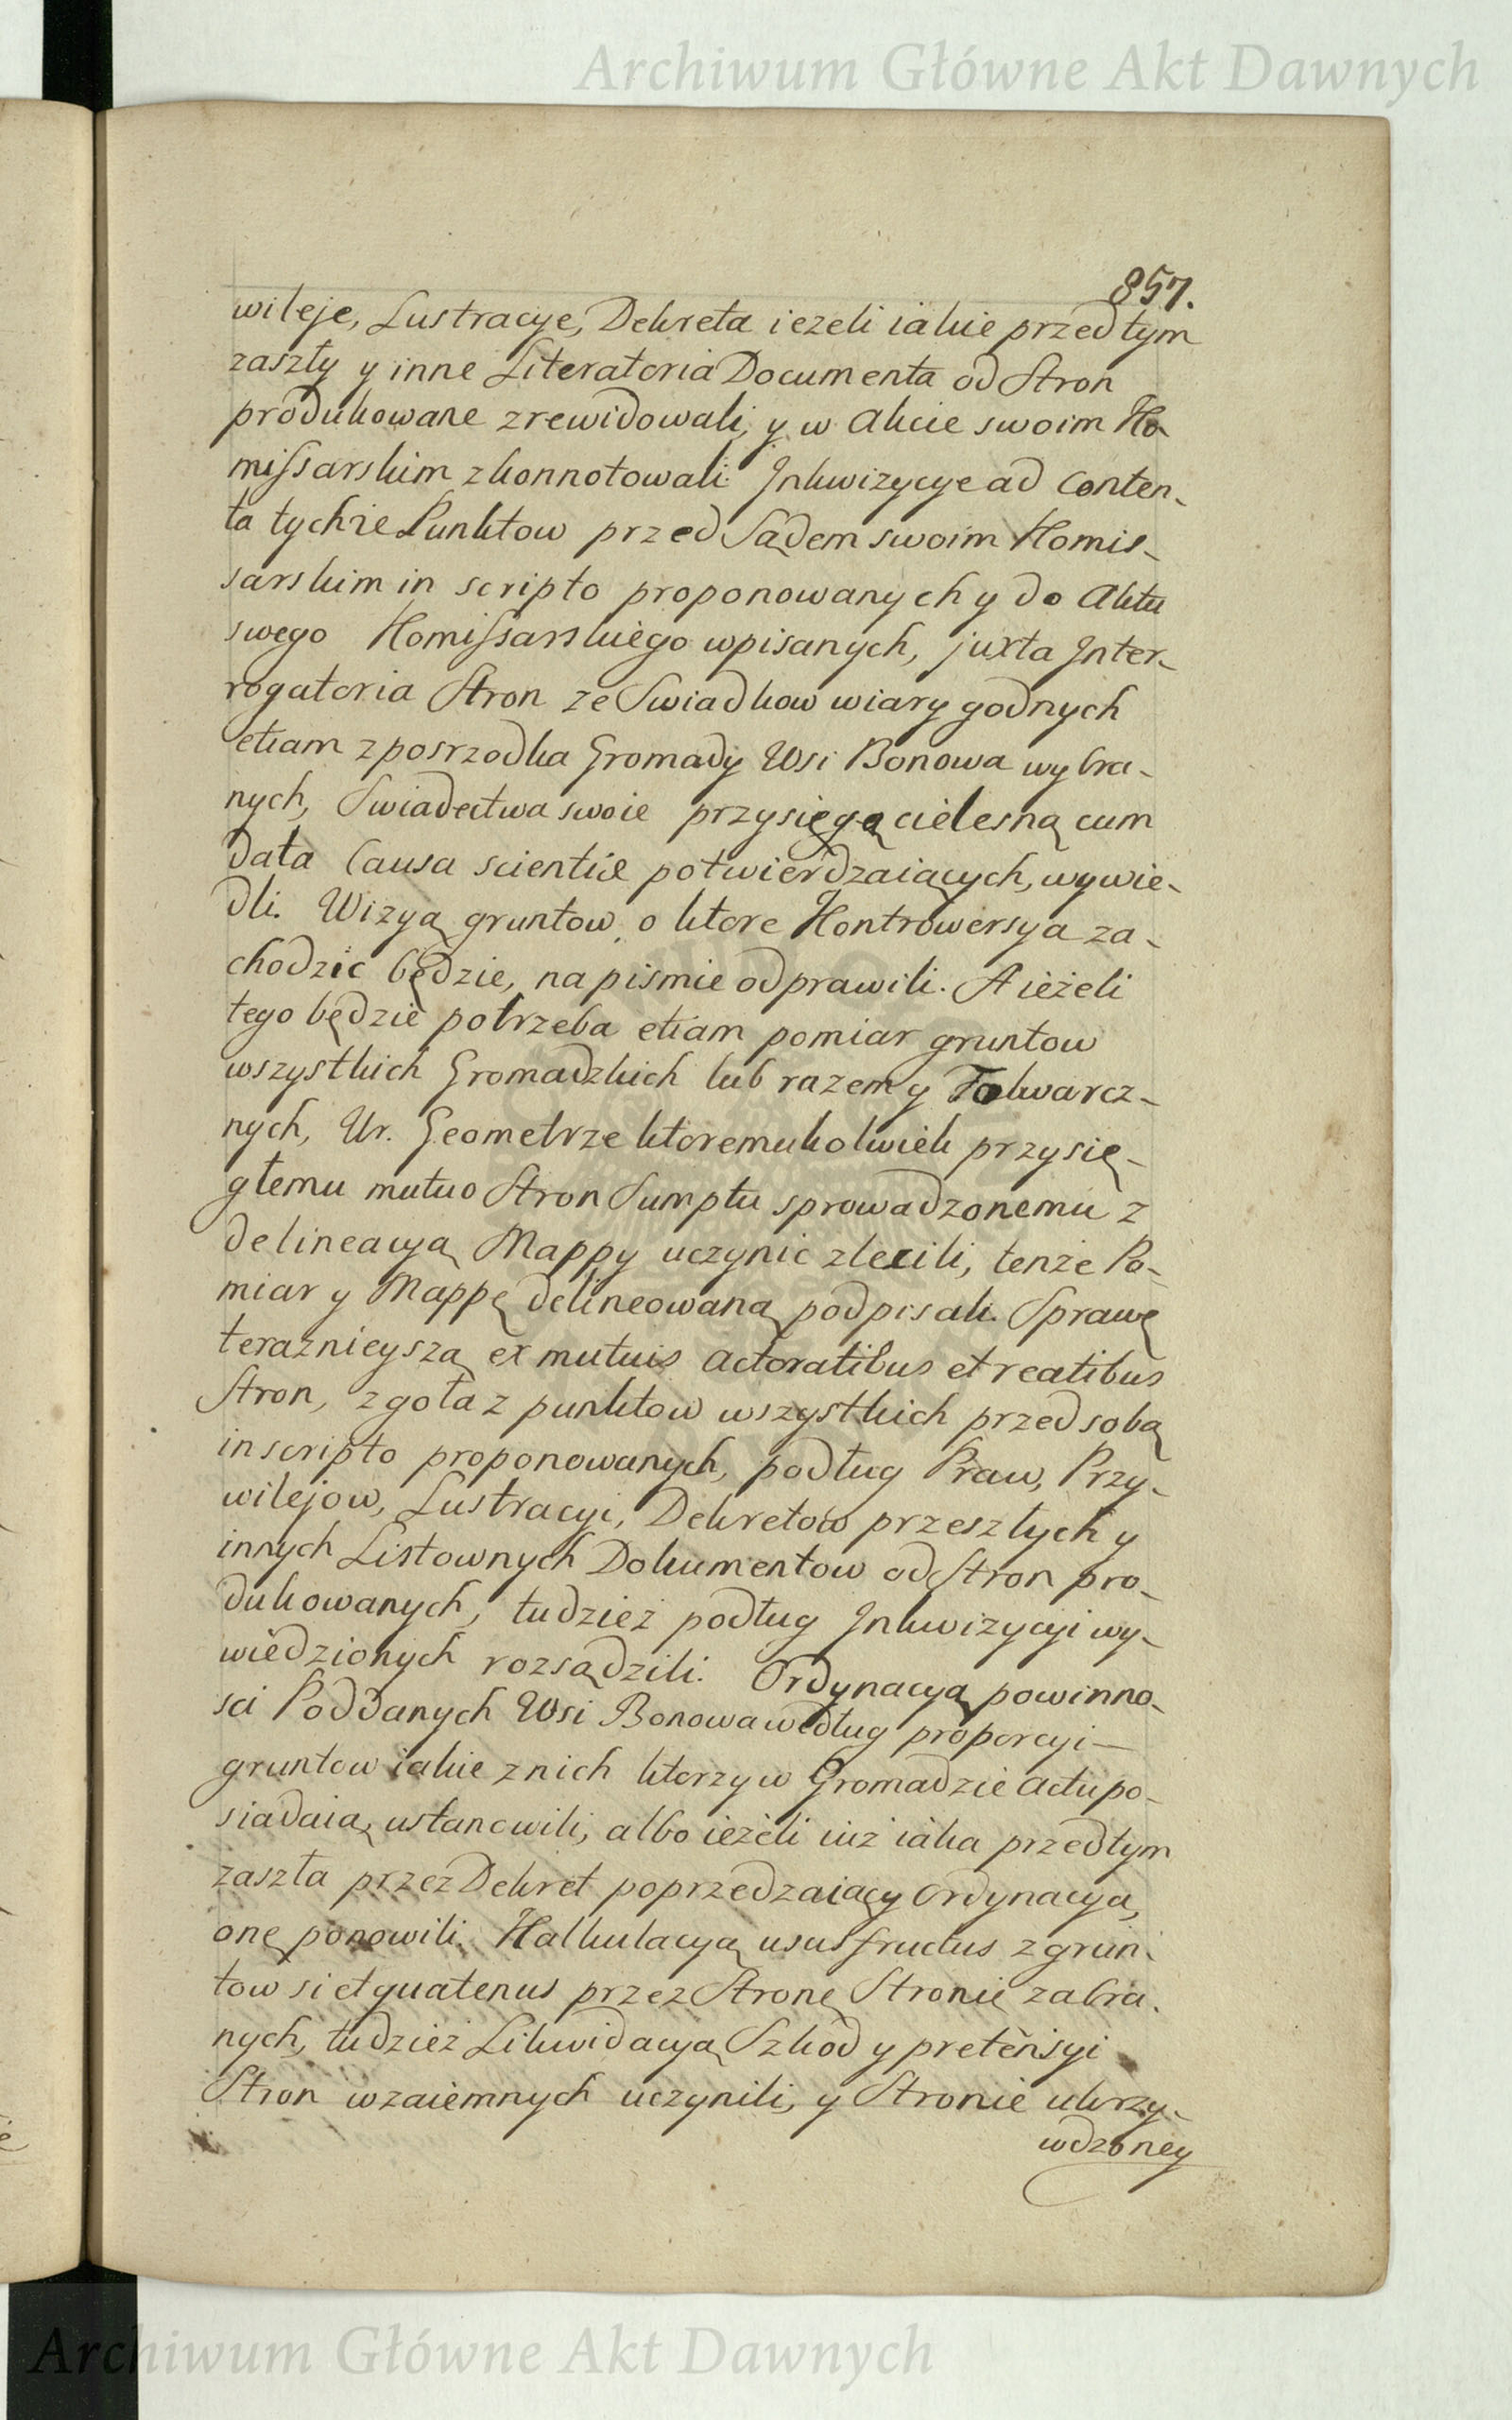 Archiwum Główne Akt Dawnych
857.
wileje, Lustracye, Dekreta ieżeli iakie przedtym
zaszły y inne Literatoria Documenta od Stron
produkowane zrewidowali, y w Akcie swoim Ko-
missarskim zkonnotowali. Inkwizycye ad conten-
ta tychże Punktow przed Sądem swoim Komis-
sarskim in scripto proponowanych y do Aktu
swego Komissarskiego wpisanych, juxta Inter-
rogatoria Stron ze Swiadkow wiary godnych
etiam z posrzodka Gromady Wsi Bonowa wybra-
nych, Swiadectwa swoie przysięgą cielesną cum
data Causa scientiæ potwierdzaiących, wywie-
dli. Wizyą gruntow, o ktore Kontrowersya za-
chodzić będzie, na pismie odprawili. A ieżeli
tego będzie potrzeba etiam pomiar gruntow
wszystkich Gromadzkich lub razem y Folwarcz-
nych, Ur. Geometrze ktoremukolwiek przysię-
głemu mutuo Stron Sumptu sprowadzonemu z
delineacyą Mappy uczynić zlecili, tenże Po-
miar y Mappę delineowaną podpisali. Sprawę
teraznieyszą ex mutuis actoratibus et reatibus
Stron, zgoła z punktow wszystkich przed sobą
in scripto proponowanych, podług Praw, Przy-
wilejow, Lustracyi, Dekretow przeszłych y
innych Listownych Dokumentow od Stron pro-
dukowanych, tudzież podług Inkwizycyi wy-
wiedzionych rozsądzili. Ordynacyą powinno-
sci Poddanych Wsi Bonowa według proporcyi
gruntow iakie z nich ktorzy w Gromadzie actu po-
siadaią, ustanowili, albo ieżeli iuż iaka przedtym
zaszła przez Dekret poprzedzaiący Ordynacya,
onę ponowili. Kalkulacyą ususfructus z grun-
tow si et quatenus przez Stronę Stronie zabra-
nych, tudzież Likwidacyą Szkod y pretensyi
Stron wzaiemnych uczynili, y Stronie ukrzy-
wdzoney
Archiwum Główne Akt Dawnych